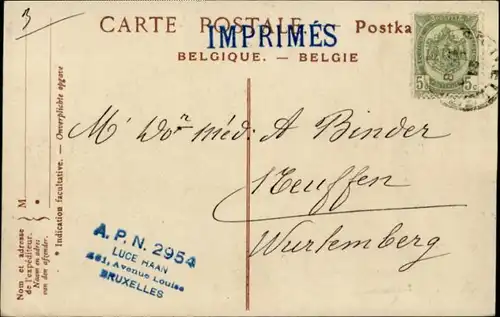 3
CARTE POSTALE. — Postka
IMPRIMÉS
BELGIQUE. — BELGIE
5c 5c
M' Do^r méd: A Binder
Neuffen
Wurtemberg
A.P.N. 2954
LUCE HAAN
481, Avenue Louise
BRUXELLES
* Indication facultative. — Onverplichte opgave
M *
Nom et adresse
de l'expéditeur.
Naam en adres
van den afzender.